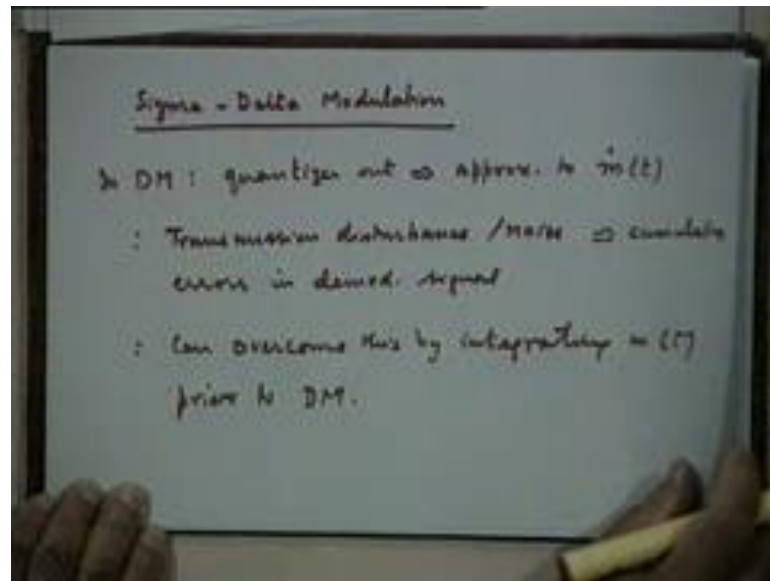 Sigma - Delta Modulation
In DM : quantizer out ⇒ approx. to ṁ(t)
: Transmission disturbance / noise ⇒ cumulative
errors in demod. signal
: Can overcome this by integrating m(t)
prior to DM.